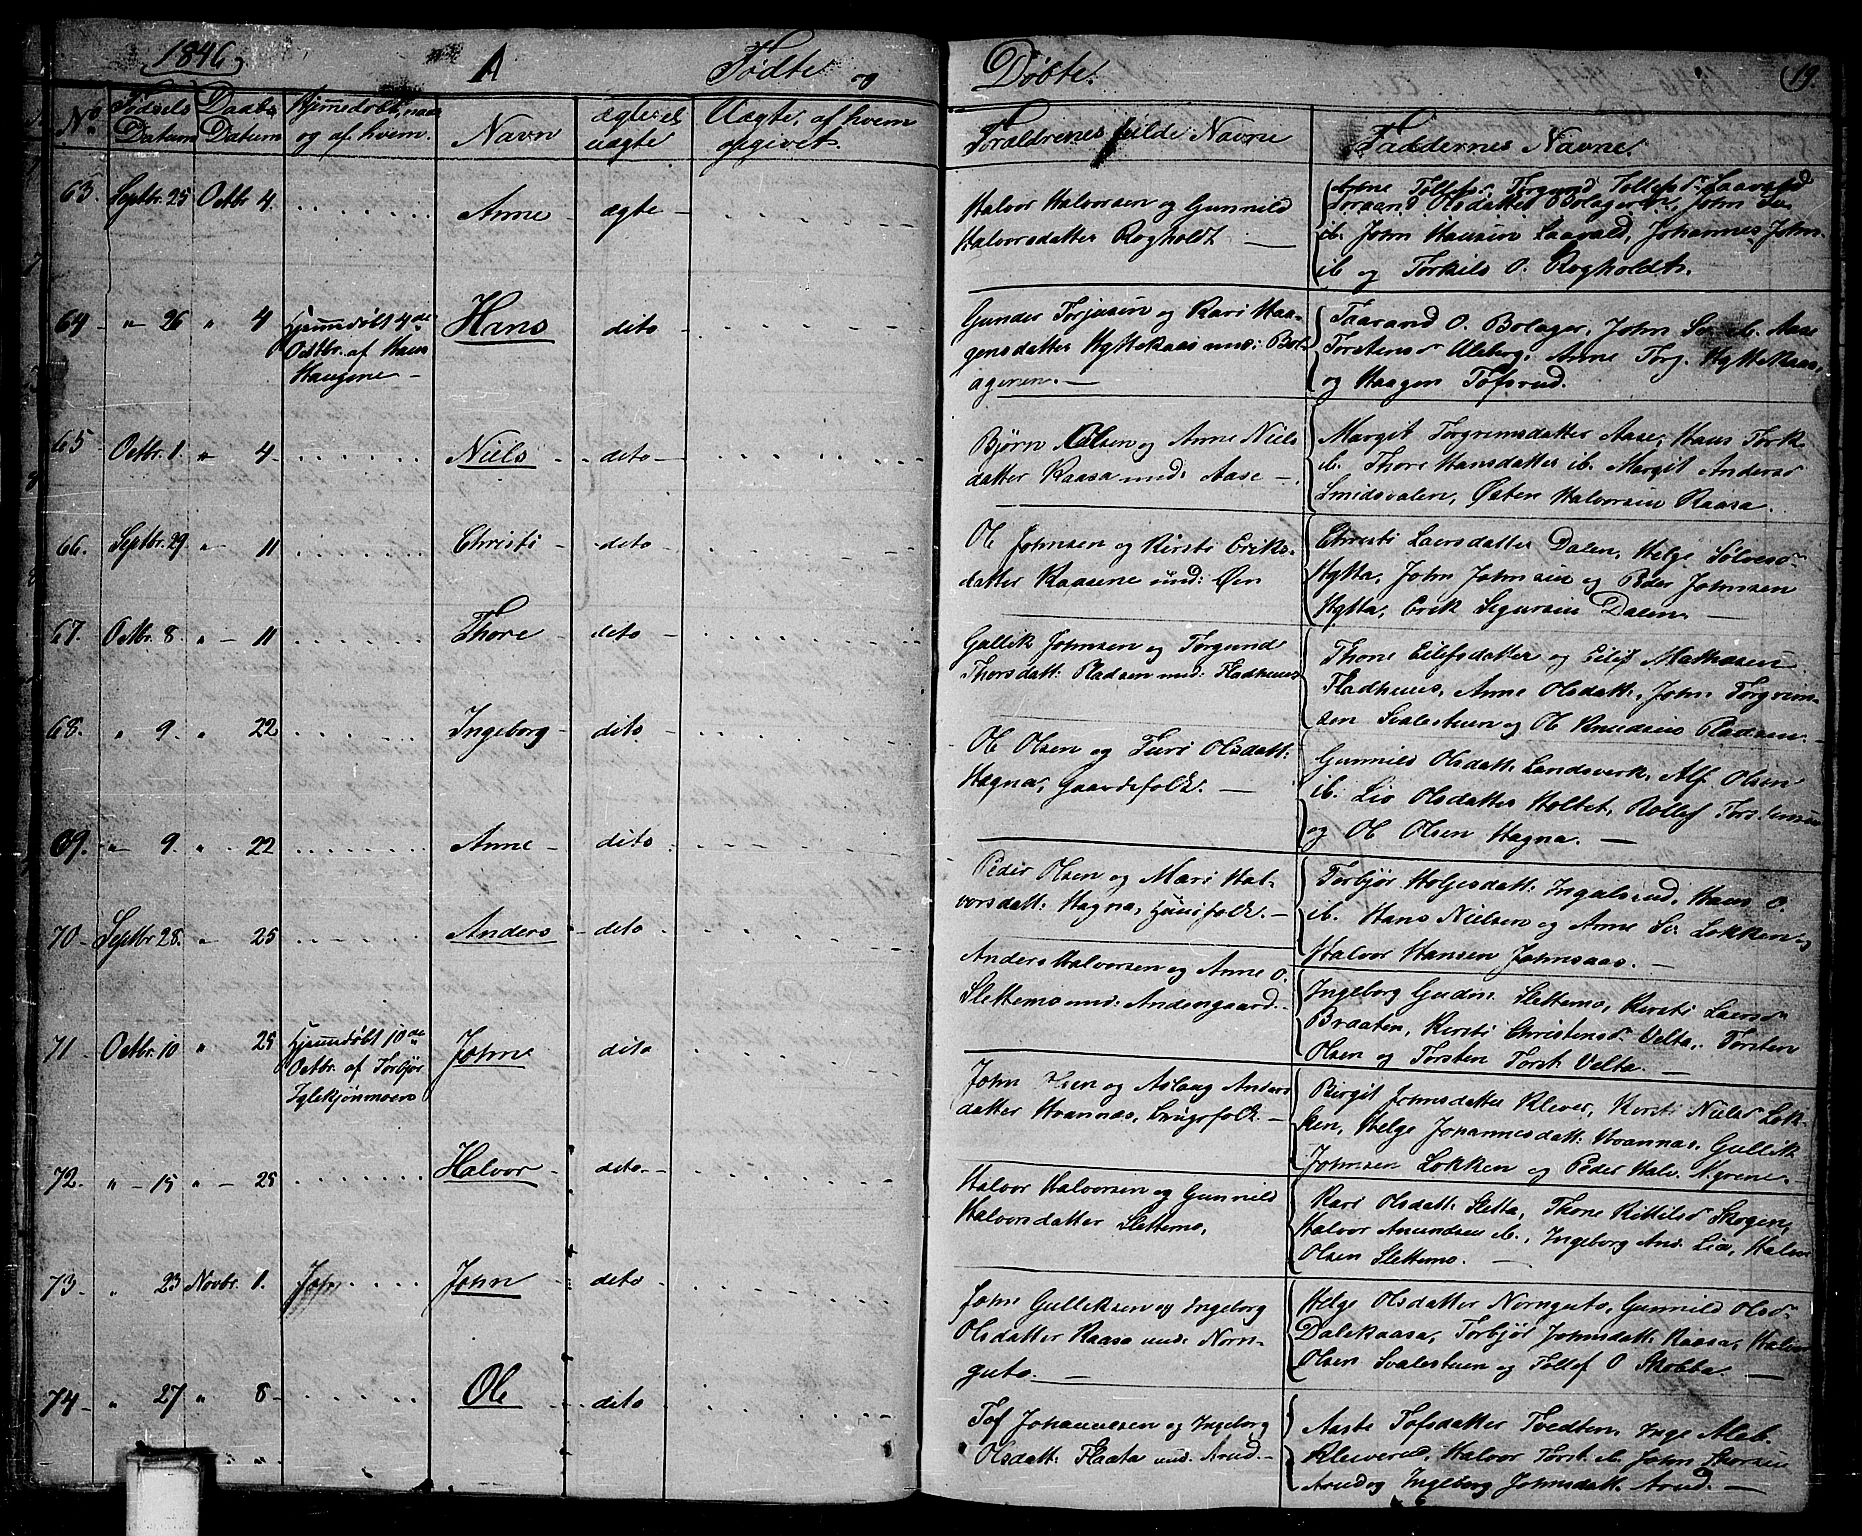 1846 A Fødte og Døbte. 19.
No Fødsels Datum Daabs Datum Hjemedøbt, naar og af hvem. Navn ægte el. uægte Uægte, af hvem opgivet. Forældrenes fulde Navne Faddernes Navne.
63 Septbr. 25 Octbr 4 Anne ægte
Halvor Halvorsen og Gunnild
Halvorsdatter Rogholdt
Olsdatter Bolageren, John
ib. John Hansen Laavald, Johannes John.
ib og Torkils O. Rogholdt.
64 " 26 " 4 Hjemmedøbt 4de
Octbr. af Hans
Haugene
Hans dito
Gunder Torjusen og Kari Haa-
gensdatter Hyttekaas und: Bol-
ageren.
Taarand O. Bolager, John ib. Aase
Torstensd Uleberg, Anne Torg. Hyttekaas,
og Haagen Tofsrud.
65 Octbr. 1. " 4 Niels dito
Bjørn Olsen og Anne Niels
datter Raasa und: Aase
Margit Torgrimsdatter Aase, Hans Tork
ib. Thore Hansdatter ib. Margit Andersd
Smidsvalen, Østen Halvorsen Raasa.
66. Septbr. 29 " 11 Christi dito
Ol Johnsen og Kirsti Eriks-
datter Raasene und: Øen
Christi Laersdatter Dalen, Helge Sølvesd
Hytta, John Johnsen og Peder Johnsen
Hytta, Erik Sigursen Dalen.
67. Octbr. 8 " 11 Thore dito
Gullik Johnsen og Torgund
Thorsdatt: Pladsen und: Fladhuus
Thone Eilefsdatter og Eilif Mathesen
Fladhuus, Anne Olsdatt., John Torgrim-
sen Svalestuen og Ol Knudsens Pladsen.
68. " 9. " 22 Ingeborg dito
Ol Olsen og Turi Olsdatt:
Hagna, Gaardefolk.
Gunnild Olsdatt: Landsverk, Alf Olsen
ib. Liv Olsdatter Holtet, Rollef Torstensen
og Ol Olsen Hagna.
69. " 9. " 22 Anne dito
Peder Olsen og Mari Hal-
vorsdatt: Hagna, Huusfolk.
Torbjør Holjesdatt: Ingulsrud, Hans O.
ib. Hans Nielsen og Anne Løkken og
Halvor Hansen Johnsaas.
70 Septbr 28. " 25 Anders dito
Anders Halvorsen og Anne O.
Slettemo und: Andengaard.
Ingeborg Slettemo, Kirsti Laersd
Braaten, Kirsti Christensd Velta, Torsten
Olsen og Torsten Torst. Velta.
71 Octbr. 10 " 25 Hjemmedøbt 10de
Octbr. af Torbjør
Iglekjønmoen
John dito
John Olsen og Aslaug Anders
datter Hvannæs, Brugsfolk.
Birgit Johnsdatter Klever, Kirsti Nielsd Løk-
ken, Helge Johannesdatt: Hvannas, Gullik
Johnsen Løkken og Peder Halv. Mgrene.
72. " 15 " 25 Halvor dito
Halvor Halvorsen og Gunnild
Halvorsdatter Slettemo,
Kari Olsdatt: Sletta, Thone Kittilsd Skogen,
Halvor Amundsen ib., Ingeborg And. Lia, Halvor
Olsen Slettemo.
73. " 23 Novbr. 1. John John dito
John Gulliksen og Ingeborg
Olsdatter Raasa und: Norn-
guto.
Helge Olsdatter Nornguto, Gunnild Olsd
Dalekaasa, Torbjør Johnsdatt: Raasa, Halvor
Olsen Svalestuen og Tollef O Skobba.
74 " 27 " 8 Ole dito
Tof Johannesen og Ingeborg
Olsdatt: Flaata und: Arud.
Aaste Tofsdatter Tvedten, Inge Aleb.
Kleiverud, Halvor Torst. ib. John
Arud og Ingeborg Johnsdatt: Arud.